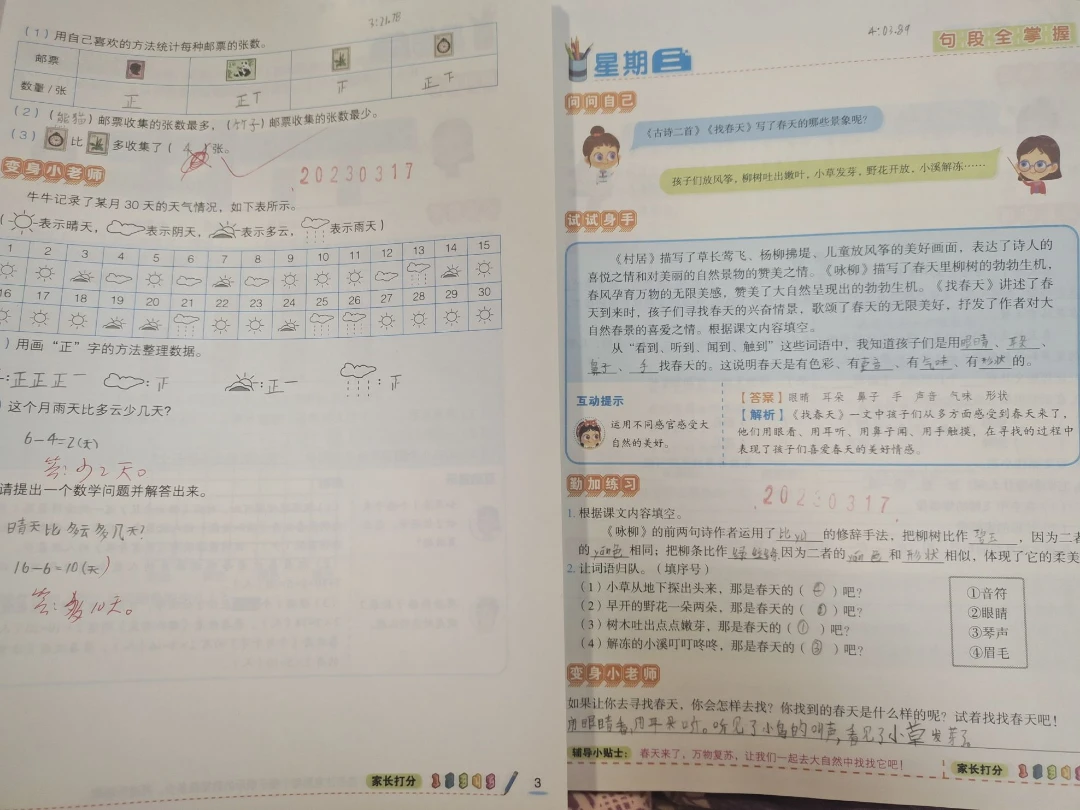 3:26.78
(1)用自己喜欢的方法统计每种邮票的张数。
邮票
数量/张 正 正丅 正 正下
(2)(熊猫)邮票收集的张数最多,(竹子)邮票收集的张数最少。
(3) 比 多收集了( )张。
变身小老师
20230317
牛牛记录了某月30天的天气情况,如下表所示。
( 表示晴天, 表示阴天, 表示多云, 表示雨天)
1 2 3 4 5 6 7 8 9 10 11 12 13 14 15
16 17 18 19 20 21 22 23 24 25 26 27 28 29 30
)用画“正”字的方法整理数据。
:正正正一 :正 :正一 :正
)这个月雨天比多云少几天?
6-4=2(天)
答:少2天。
请提出一个数学问题并解答出来。
晴天比多云多几天?
16-6=10(天)
答:多10天。
家长打分 1 2 3 4 5
3
4:03.89
句段全掌握
星期二
问问自己
《古诗二首》《找春天》写了春天的哪些景象呢?
孩子们放风筝,柳树吐出嫩叶,小草发芽,野花开放,小溪解冻……
试试身手
《村居》描写了草长莺飞、杨柳拂堤、儿童放风筝的美好画面,表达了诗人的
喜悦之情和对美丽的自然景物的赞美之情。《咏柳》描写了春天里柳树的勃勃生机,
春风孕育万物的无限美感,赞美了大自然呈现出的勃勃生机。《找春天》讲述了春
天到来时,孩子们寻找春天的兴奋情景,歌颂了春天的无限美好,抒发了作者对大
自然春景的喜爱之情。根据课文内容填空。
从“看到、听到、闻到、触到”这些词语中,我知道孩子们是用眼睛、 、
鼻子、手找春天的。这说明春天是有色彩、有声音、有气味、有形状的。
互动提示
运用不同感官感受大
自然的美好。
【答案】眼睛 耳朵 鼻子 手 声音 气味 形状
【解析】《找春天》一文中孩子们从多方面感受到春天来了,
他们用眼看、用耳听、用鼻子闻、用手触摸,在寻找的过程中
表现了孩子们喜爱春天的美好情感。
勤加练习
20230317
1.根据课文内容填空。
《咏柳》的前两句诗作者运用了比yù的修辞手法,把柳树比作 ,因为二者
的yán色相同;把柳条比作 因为二者的yán色和形状相似,体现了它的柔美
2.让词语归队。(填序号)
(1)小草从地下探出头来,那是春天的(④)吧?
(2)早开的野花一朵两朵,那是春天的(②)吧?
(3)树木吐出点点嫩芽,那是春天的(①)吧?
(4)解冻的小溪叮叮咚咚,那是春天的(③)吧?
①音符
②眼睛
③琴声
④眉毛
变身小老师
如果让你去寻找春天,你会怎样去找?你找到的春天是什么样的呢?试着找找春天吧!
用眼睛看,用耳朵听。听见了小鸟的叫声,看见了小草发芽了。
辅导小贴士: 春天来了,万物复苏,让我们一起去大自然中找找它吧!
家长打分 1 2 3 4